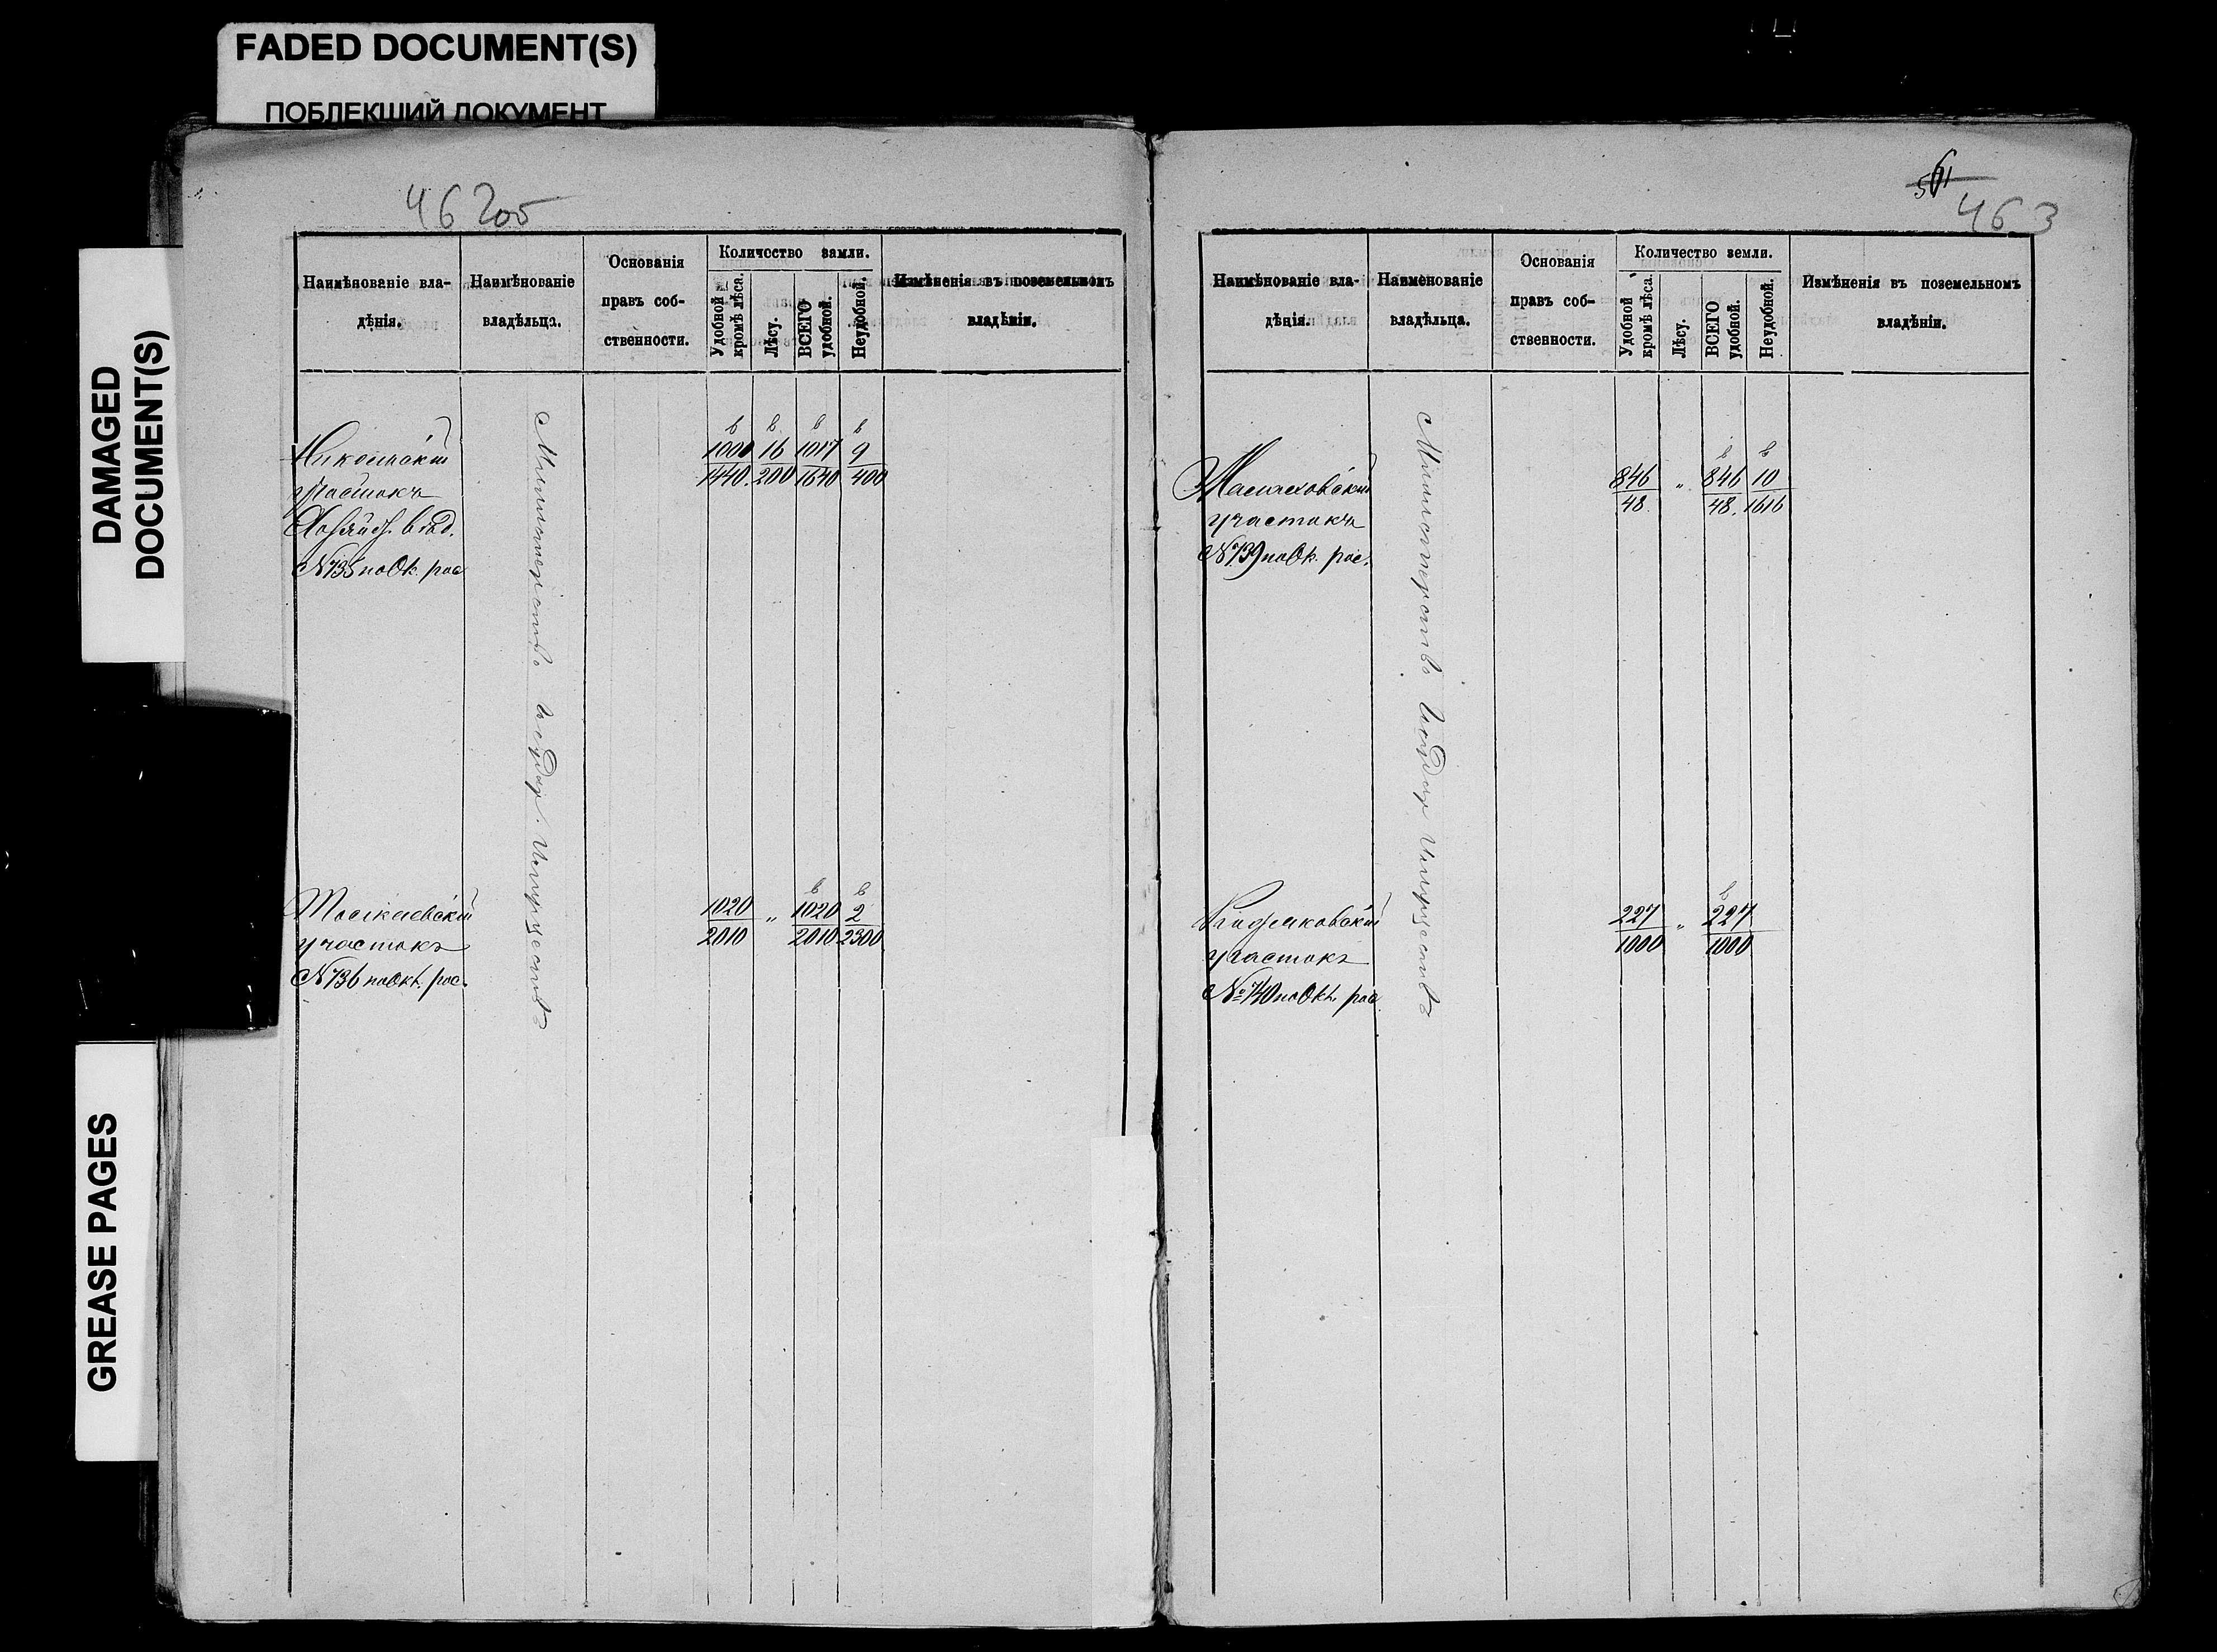 FADED DOCUMENT(S)
ПОБЛЕКШИЙ ДОКУМЕНТ
DAMAGED
DOCUMENT(S)
GREASE PAGES
462об
Наимѣнованіе вла-
дѣнія.
Наимѣнованіе
владѣльца.
Основанія
правъ соб-
ственности.
Количество земли.
Удобной
кромѣ лѣса.
Лѣсу.
ВСЕГО
удобной.
Неудобной.
Измѣненія въ поземельномъ
владѣніи.
Никольскій
участокъ
влад.
№ 735 по Ок. рос
Министерство Государ. Имуществъ
1000 16 1017 9
1440. 200 1640 400
участокъ
№ 736 по Окл. рос.
1020 „ 1020 2
2010 2010 2300
561
463
Наимѣнованіе вла-
дѣнія.
Наименованіе
владѣльца.
Основанія
правъ соб-
ственности.
Количество земли.
Удобной
кромѣ лѣса.
Лѣсу.
ВСЕГО
удобной.
Неудобной.
Измѣненія въ поземельномъ
владѣніи.
участокъ
№ 739 по Ок. рос.
Министерство Государ. Имуществъ
846 „ 846 10
48. 48. 1616
участокъ
№ 740 по Окл. рос
227 „ 227
1000 1000